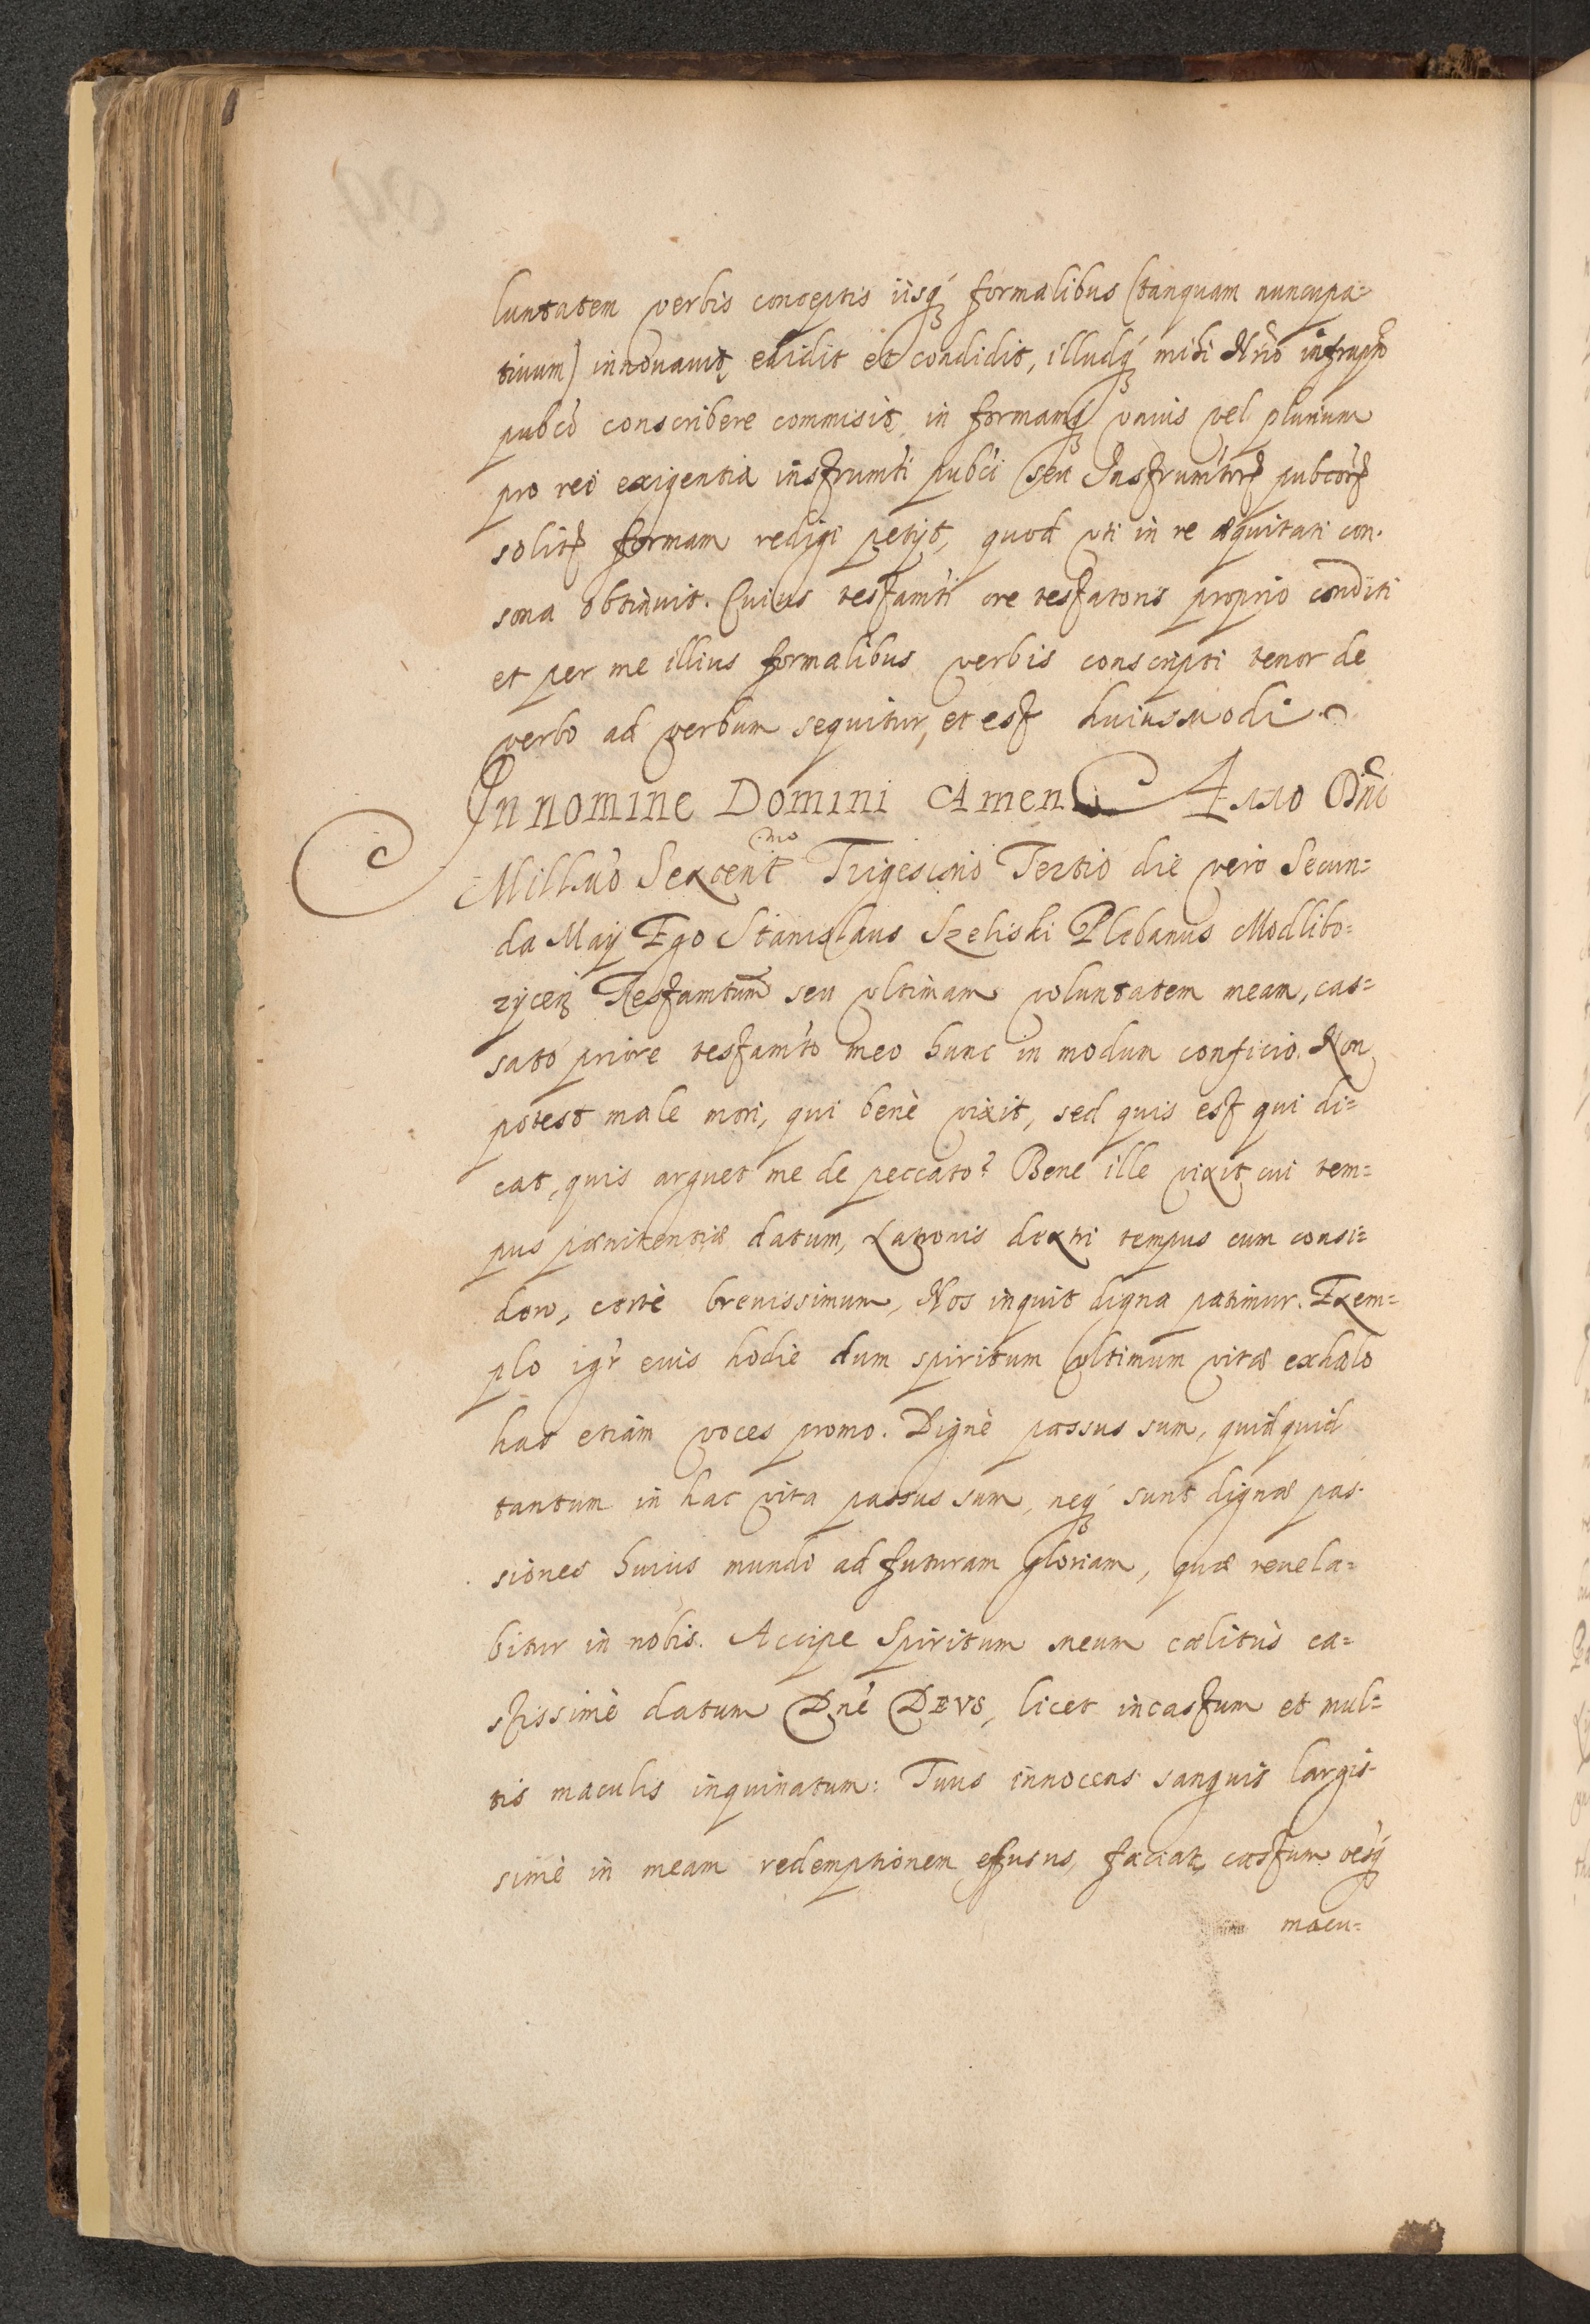 luntatem verbis conceptis iisq́ꝫ formalibus (tanquam nuncupa-
tiuum) innouauit, edidit et condidit, illudq́ꝫ mihi Nrĩo infrapto
pubcò conscribere commisit, in formamq́ꝫ vnius vel plurium
pro rei exigentia instrumti pubci seu Instrumtorꝝ pubcorꝝ
solitꝝ formam redigi petijt, quod vti in re æquitati con-
sona obtinuit. Cuius testamti ore testatoris proprio conditi
et per me illius formalibus verbis conscripti tenor de
verbo ad verbum sequitur, et est huiusmodi.
In nomine Domini Amen Anno Dñi
Millmo Sexcentmo Trigesimo Tertio die vero Secun=
da Maij Ego Stanislaus Szeliski Plebanus Modlibo=
rzyceñ Testamtum seu vltimam voluntatem meam, cas=
sato priore testamto meo hunc in modum conficio. Non
potest male mori, qui benè vixit, sed quis est qui di=
cat, quis arguet me de peccato? Bene ille vixit cui tem=
pus pœnitentiæ datum, Latronis dextri tempus cum consi=
dero, certè breuissimum, Nos inquit digna patimur. Exem=
plo igr̃ euis hodie dum spiritum vltimum vitæ exhalo
has etiam voces promo. Dignè passus sum, quidquid
tantum in hac vita passus sum, neq́ꝫ sunt dignæ pas-
siones huius mundi ad futuram gloriam, quæ reuela=
bitur in nobis. Accipe Spiritum meum cælitùs ca=
stissimè datum Dñe DEVS, licet incastum et mul=
tis maculis inquinatum: Tuus innocens sanguis largis-
simè in meam redemptionem effusus, faciat castum resq́ꝫ
macu=